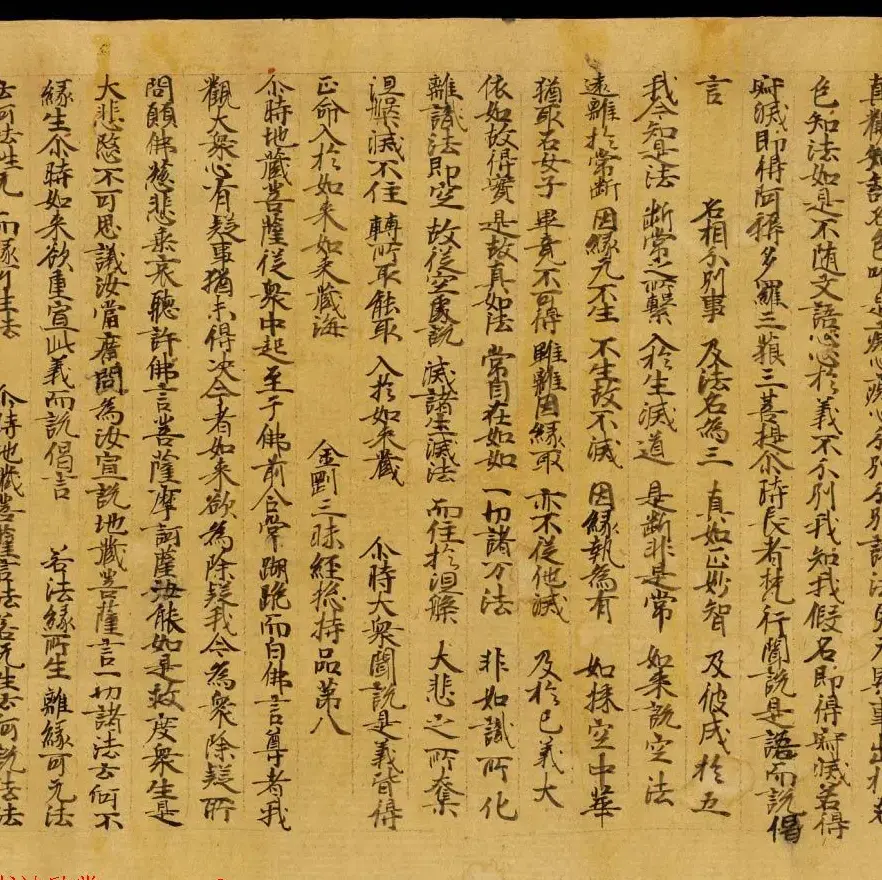 真觀知諸名色唯是癡心癡心分別分別諸法更无異事出於名
色知法如是不随文語心心於義不分別我知我假名即得寂滅若得
寂滅即得阿耨多羅三藐三菩提尒時長者梵行聞說是語而說偈
言 名相分別事 及法名為三 真如正妙智 及彼成於五
我今知是法 断常之所繫 入於生滅道 是断非是常 如来說空法
遠離於常断 因緣无不生 不生故不滅 因緣執為有 如採空中華
猶取石女子 畢竟不可得 雖離因緣取 亦不從他滅 及於己義大
依如故得實 是故真如法 常自在如如 一切諸万法 非如識所化
離識法即空 故從空處說 滅諸生滅法 而住於涅槃 大悲之所奪
涅槃滅不住 轉所取能取 入於如来藏 尒時大衆聞說是義皆得
正命入於如来如来藏海 金剛三昧經揔持品第八
尒時地藏菩薩從衆中起至于佛前合掌蹦跪而白佛言尊者我
觀大衆心有疑事猶未得决今者如来欲為除疑我今為衆除疑所
問願佛慈悲垂哀聽許佛言菩薩摩訶薩汝能如是救度衆生是
大悲愍不可思議汝當廣問為汝宣說地藏菩薩言一切諸法云何不
緣生尒時如来欲重宣此義而說偈言 若法緣所生 離緣可无法
云何法性无 而緣可生法 尒時地藏菩薩言法若无生云何說法法